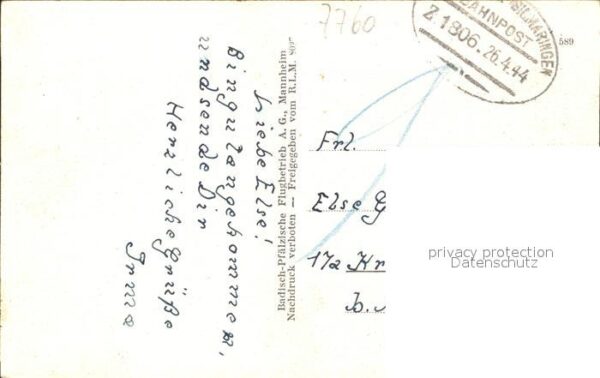 7760
SIGMARINGEN
BAHNPOST
Z.1906.26.4.44
589
Liebe Else!
Bin gut angekommen,
und sende Dir
Herzliche Grüße
Irma
Badisch-Pfälzische Flugbetrieb A. G., Mannheim
Nachdruck verboten — Freigegeben vom R.L.M.
Frl.
Else G
17a Kr
b.
privacy protection
Datenschutz